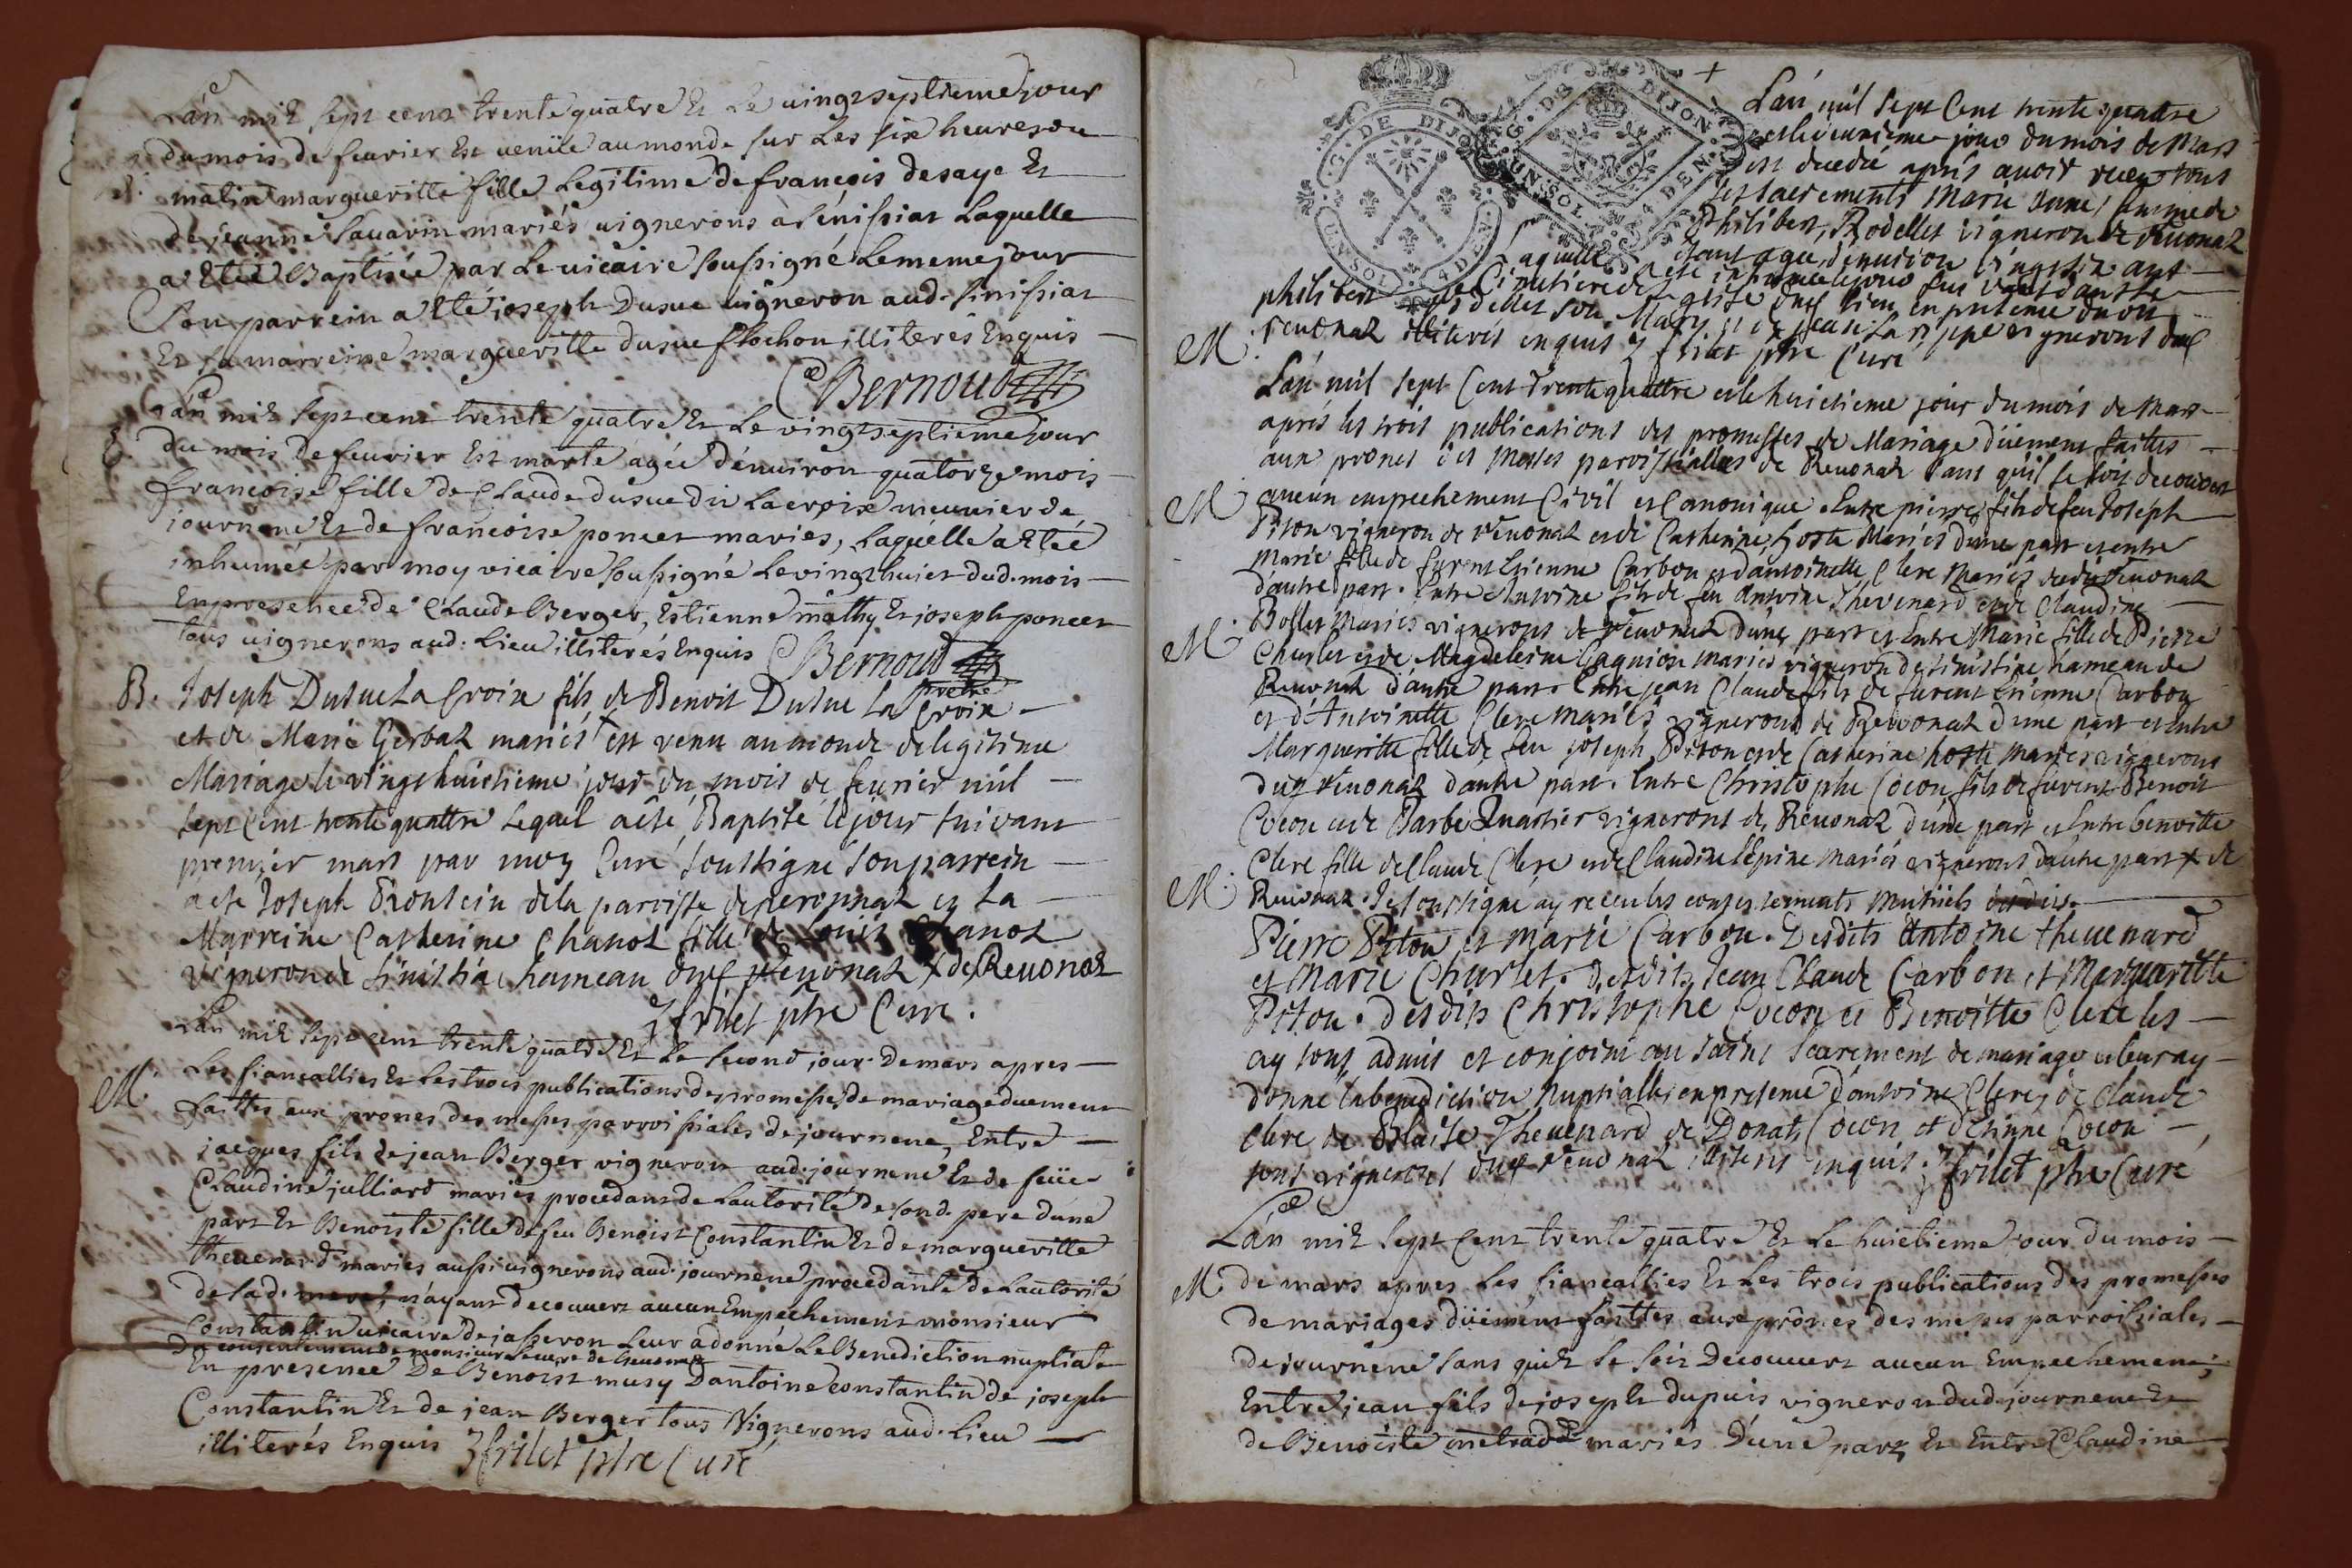 Lán mil sept cent trente quatre Et Le vingtseptieme jour
du mois de feurier Est venüe au monde sur Les six heures du
matin margueritte fille Legitime de francois desaye Et
de jeanne sauarin mariés vignerons à Sénissiat Laquelle
a Eteé Baptisée par Le vicaire soussigné Le meme jour
Son parrein a Eté joseph Dusue vigneron aud. sinissiat
Et sa marreine margueritte dusue flochon illiterés Enquis
Bernoud
Lán mil sept cent trente quatre Et Le vingtseptieme jour
E. du mois de feurier Est morte agée d'enuiron quatorze mois
francoise fille de Claude dusue dit Lacroix meunier de
journane Et de francoise poncet mariés, Laquelle a Eteé
inhumée par moy vicaire soussigné Le vingt huict dud. mois
En presence de Claude Berger, Estienne mathy Et joseph poncet
tous vignerons aud: Lieu illiterés Enquis CBernoud
prêtre
B. Joseph Dusue La Croix fils de Benoit Dusue La Croix
et de Marie Gerbat mariés + est venu au monde de legitime
Mariage le vingt huictieme jour du mois de feurier mil
sept cent trente quattre Lequel a été Baptisé le jour suivant
premier mars par moy Curé soussigné son parrein
a été Joseph de la paroisse de et La
Marreine Catherine Chanot fille de Louis Chanot
vigneron de sinissia hameau dud Reuonat + de Reuonat
frilet ptre Curé.
Lán mil sept cent trente quatre Et Le second jour de mars apres
M. Les fiancallies Et Les trois publications des promesses de mariage duement
faittes aux prones des messes parroissiales de journene, Entre
jacques fils de jean Berger vigneron aud. journene Et de feüe
Claudine julliard mariés procedant de Lautorité de sond. pere dune
part Et Benoiste fille de feu Benoist Constantin Et de margueritte
theuenard mariés aussi vignerons aud. journene procedante de Lautorité
de sad. mere, n'ayant decouuert aucun Empechement monsieur
Constantin vicaire de jasseron Leur a donné La Benediction nuptiale
du consentement de monsieur Le cure de Reuonat
En presence De Benoist musy D'antoine constantin de joseph
Constantin Et de jean Berger tous Vignerons aud. Lieu
illiterés Enquis frilet ptre Curé
G. DE DIJON
UN SOL 4 DEN.
G. DE DIJON
UN SOL 4 DEN.
+
L'an mil sept Cent trente quattre
et le deuxième jour du mois de Mars
est decedé aprés avoir receu tous
les sacrements Marie femme de
Philibert Rodellet vigneron de Reuonat
Laquelle étant agée d'enuiron vingt six ans
a été inhumée le jour suivant dans le
Cimitiere de l'Eglise dud lieu en presence dudit
philibert Rodellet son Mary et de vignerons dud
M. Reuonat illiterés enquis frilet ptre Curé
L'an mil sept Cent Trente quattre et le huictieme jour du mois de Mars
aprés les trois publications des promesses de Mariage düement faittes
aux prones des Messes paroissialles de Reuonat sans qu'il se soit decouvert
M. aucun empechement Civil et Canonique. Entre pierre fils de feu Joseph
Piton vigneron de Reuonat et de Catherine hoste Mariés d'une part et entre
Marie fille de furent Etienne Carbon et d'antoinette Clere Mariés de Reuonat
d'autre part. Entre Antoine fils de feu Antoine Thevenard et de Claudine
M. Bollet Mariés vignerons de Reuonat d'une part et Entre Marie fille de Pierre
Churlet et de Magdeleine Gagnion mariés vigneron de sinissia hameau de
Reuonat d'autre part. Entre jean Claude fils de furent Etienne Carbon
et d'Antoinette Clere Mariés vignerons de Reuonat d'une part et entre
Margueritte fille de feu joseph Piton et de Catherine hoste Mariés vignerons
dud Reuonat d'autre part. Entre Christophe Cocon fils de furent Benoit
Cocon et de Barbe Quartier vignerons de Reuonat d'une part et Entre benoitte
Clere fille de Claude Clere et de Claudine l'Epine Mariés vignerons d'autre part + de
M. Reuonat. Je soussigné ay receu les consentements Mutüels desdits
Pierre Piton et Marie Carbon. Desdits Antoine theuenard
et Marie Churlet. desdits Jean Claude Carbon et Margueritte
Piton. desdits Christophe Cocon et Benoitte Clere les
ay tous admis et conjoint au saint sacrement de mariage et leur ay
donné la benediction Nuptialle en presence d'antoine Clere, de Claude
Clere de Blaise Theuenard de Donat Cocon et d'Etienne Cocon
tous vignerons dud Reuonat illiterés enquis. frilet ptre Curé
Lán mil sept Cent trente quatre Et Le huictieme jour du mois
M. de mars apres Les fiancallies Et Les trois publications des promesses
de mariages düement faittes aux prônes des messes parroissiales
de journene sans quil se soit decouuert aucun Empechement;
Entre jean fils de joseph dupuis vigneron dud. journene Et
de Benoiste métrad mariés D'une part, Et Entre Claudine